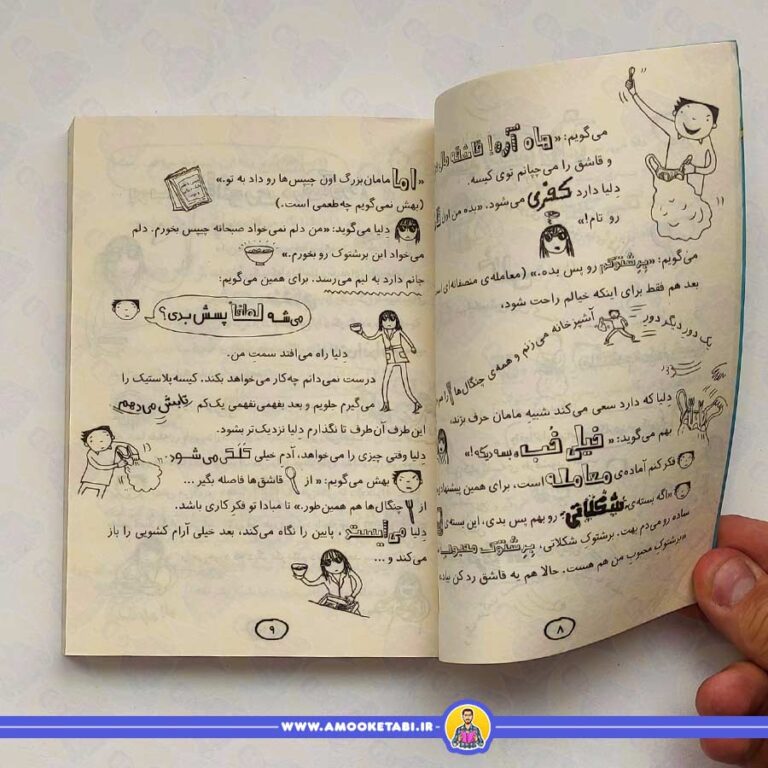 می‌گویم: «هاه آره!
و قاشق را می‌چپانم توی کیسه.
دِلیا دارد کفری می‌شود. «بده من اون
رو تام!»
می‌گویم: «پرشتوکم رو پس بده.» (معامله‌ی منصفانه‌ای
بعد هم فقط برای اینکه خیالم راحت شود،
یک دورِ دیگر دورِ آشپزخانه می‌زنم و همه‌ی چنگال‌ها
دِلیا که دارد سعی می‌کند شبیهِ مامان حرف بزند،
بهم می‌گوید: «خیلی خب، بسه دیگه!»
فکر کنم آماده‌ی معامله است، برای همین پیشنهاد
«اگه بسته‌ی شکلاتی رو بهم پس بدی، این بسته‌ی
ساده رو می‌دم بهت. برشتوکِ شکلاتی، برشتوک محبوب
«برشتوکِ محبوبِ من هم هست. حالا هم یه قاشق رد کن بیاد
۸
«اما مامان‌بزرگ اون چیپس‌ها رو داد به تو.»
(بهش نمی‌گویم چه طعمی است.)
دِلیا می‌گوید: «من دلم نمی‌خواد صبحانه چیپس بخورم. دلم
می‌خواد این برشتوک رو بخورم.»
جانم دارد به لبم می‌رسد. برای همین می‌گویم:
می‌شه لطفاً پسش بدی؟
دِلیا راه می‌افتد سمت من.
درست نمی‌دانم چه‌کار می‌خواهد بکند. کیسه پلاستیک را
می‌گیرم جلویم و بعد بفهمی‌نفهمی یک‌کم تابش می‌دهم
این طرف آن‌طرف تا نگذارم دِلیا نزدیک‌تر بشود.
دِلیا وقتی چیزی را می‌خواهد، آدم خیلی کَلَکی می‌شود.
بهش می‌گویم: «از قاشق‌ها فاصله بگیر ...
از چنگال‌ها هم همین‌طور.» تا مبادا تو فکرِ کاری باشد.
دِلیا می‌ایستد، پایین را نگاه می‌کند، بعد خیلی آرام کشویی را باز
می‌کند و ...
۹
WWW.AMOOKETABI.IR